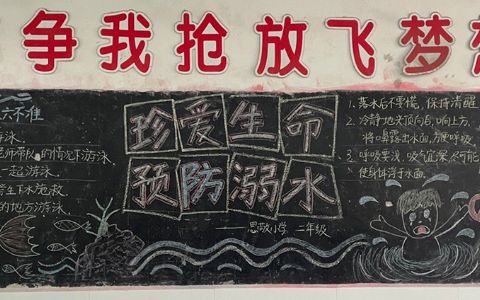 争我抢放飞梦想
六不准
游泳
老师带队的情况下游泳
一起游泳
学生下水施救
的地方游泳
珍爱生命
预防溺水
思源小学 二年级
1. 落水后不要慌,保持清醒
2. 冷静地头顶向后,口向上方,
将口鼻露出水面,方便呼吸
3. 呼吸要浅,吸气宜深,尽可能
使身体浮于水面.